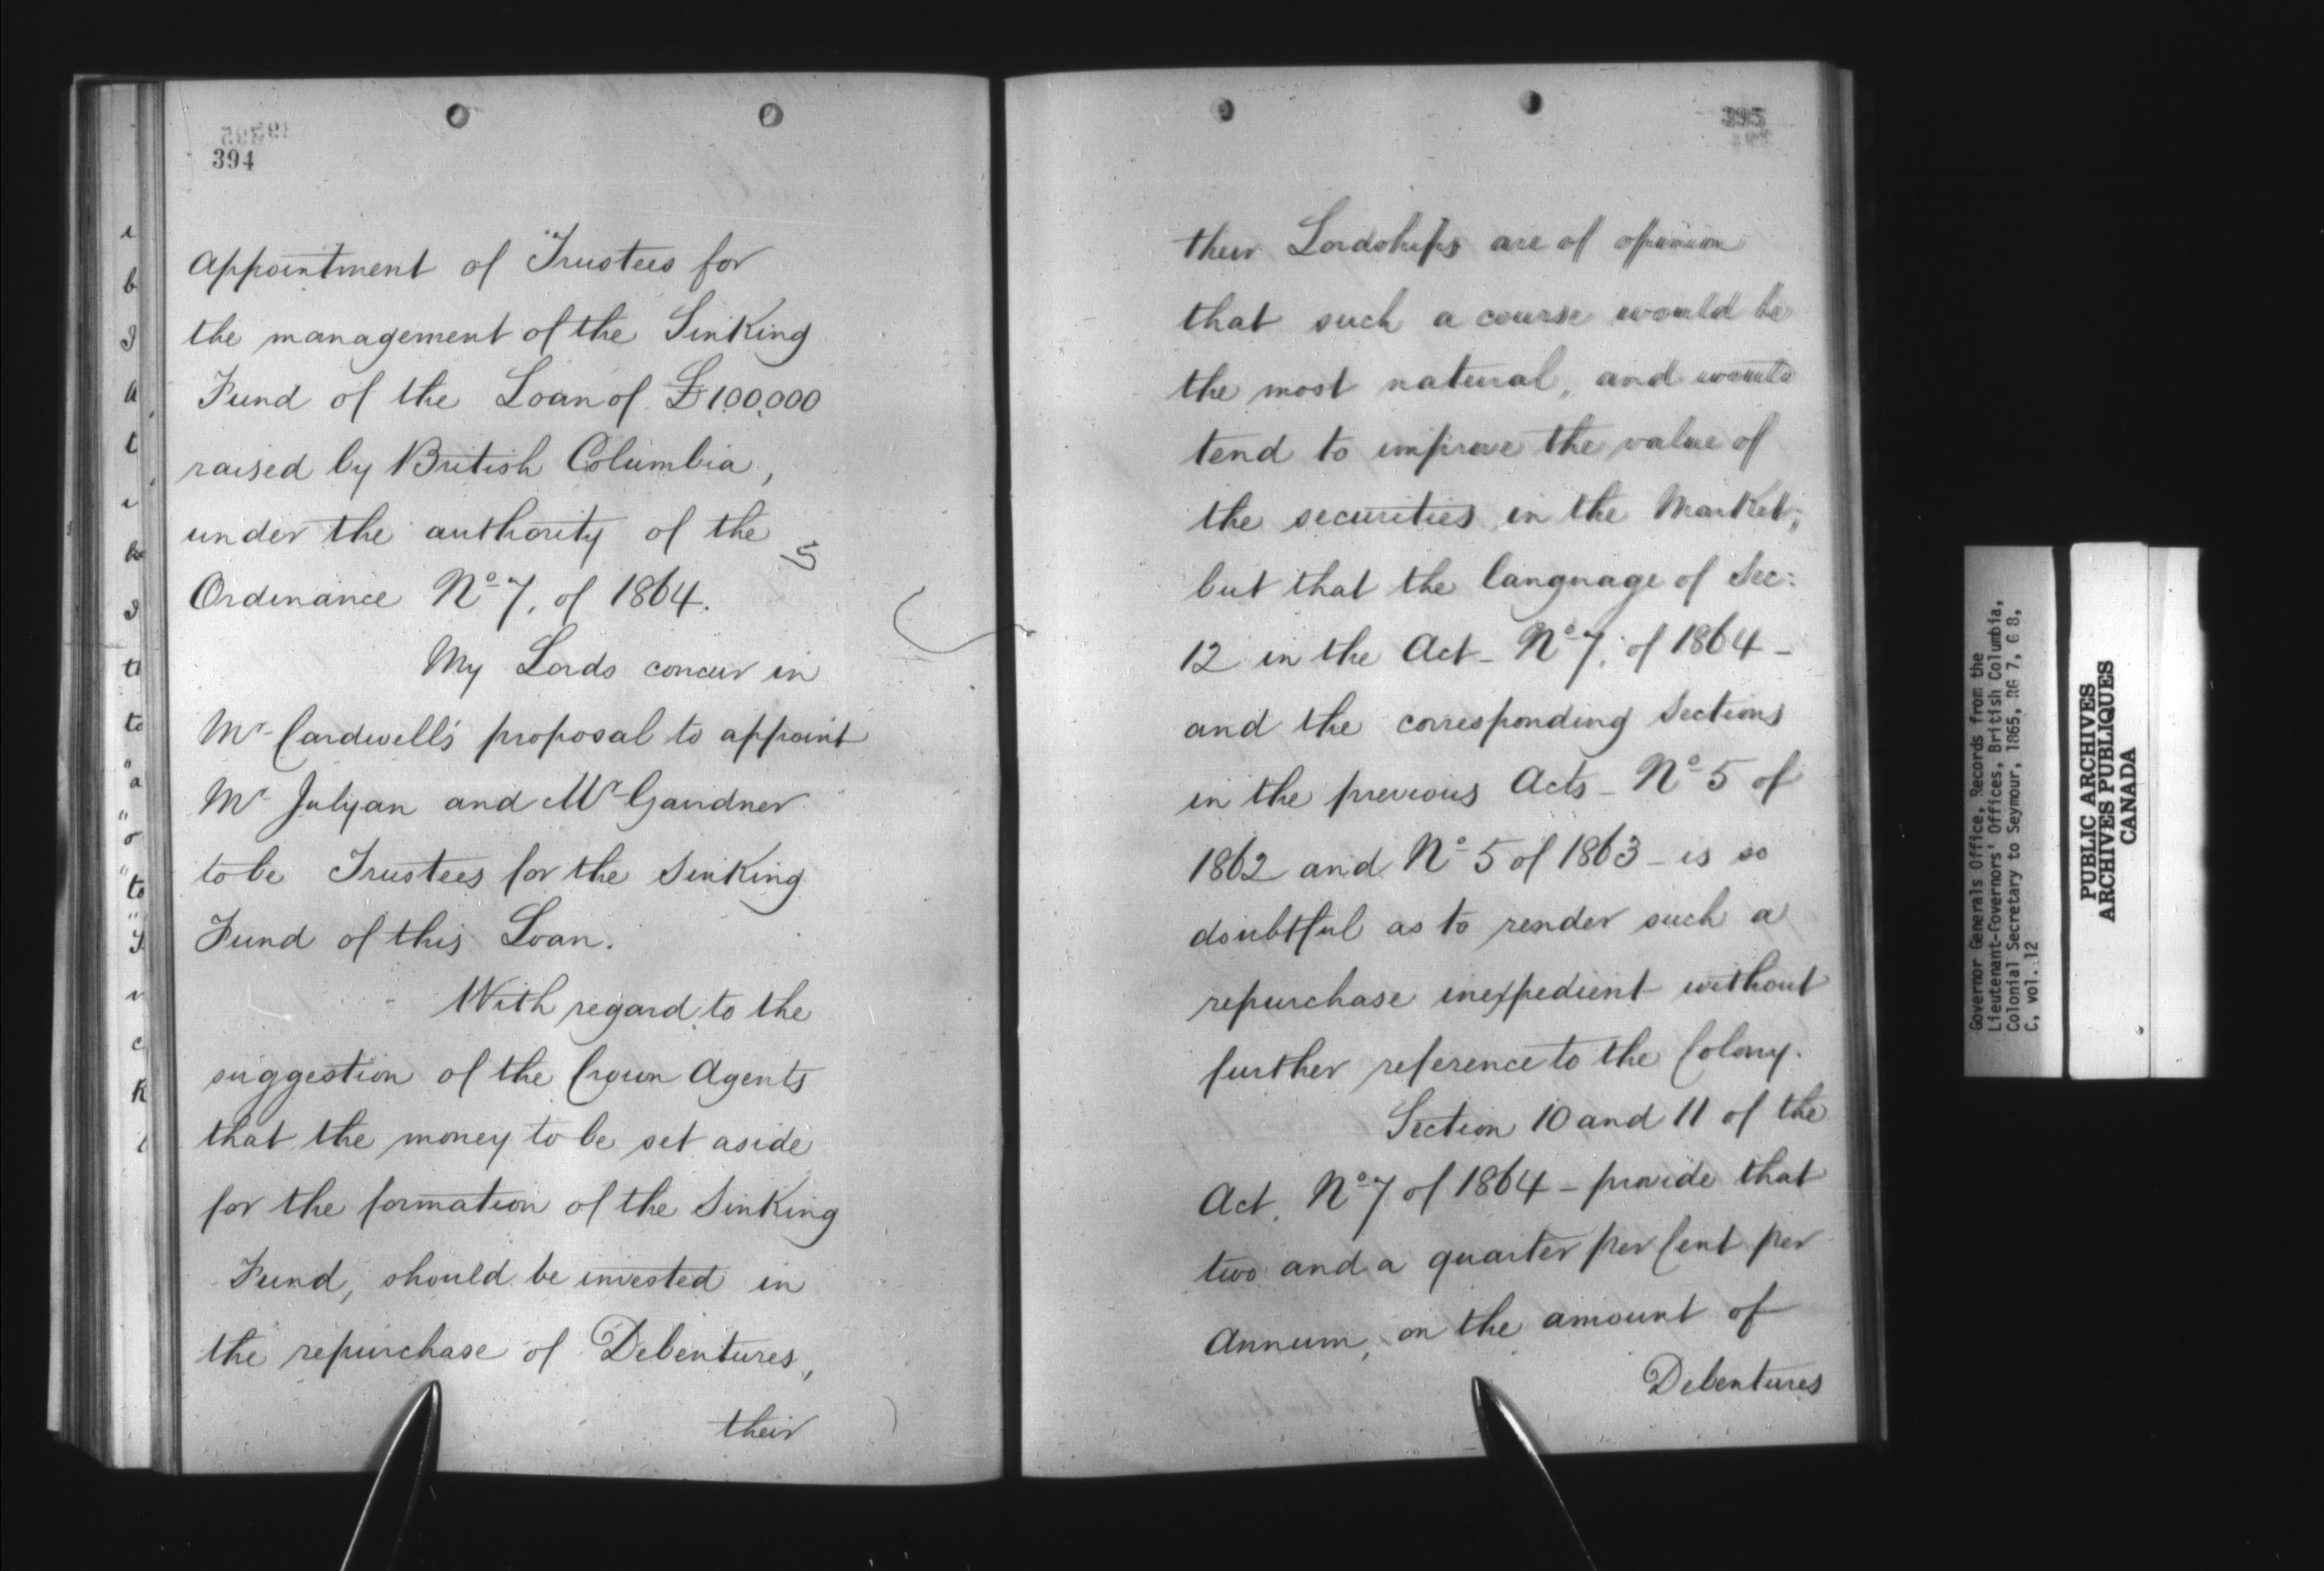 394
appointment of Trustees for
the management of the Sinking
Fund of the Loan of £100,000
raised by British Columbia,
under the authority of the
Ordinance No 7, of 1864.
My Lords concur in
Mr Cardwell's proposal to appoint
Mr Julyan and Mr Gardner
to be Trustees for the Sinking
Fund of this Loan.
With regard to the
suggestion of the Crown Agents
that the money to be set aside
for the formation of the Sinking
Fund, should be invested in
the repurchase of Debentures,
their
395
their Lordships are of opinion
that such a course would be
the most natural, and would
tend to improve the value of
the securities in the Market;
but that the language of Sec:
12 in the Act - No 7, of 1864 -
and the corresponding Sections
in the previous Acts - No 5 of
1862 and No 5 of 1863 - is so
doubtful as to render such a
repurchase inexpedient without
further reference to the Colony.
Section 10 and 11 of the
Act, No 7 of 1864 - provide that
two and a quarter per Cent per
Annum, on the amount of
Debentures
Governor Generals Office, Records from the
Lieutenant-Governors' Offices, British Columbia,
Colonial Secretary to Seymour, 1865, RG 7, G 8,
C, vol. 12
PUBLIC ARCHIVES
ARCHIVES PUBLIQUES
CANADA